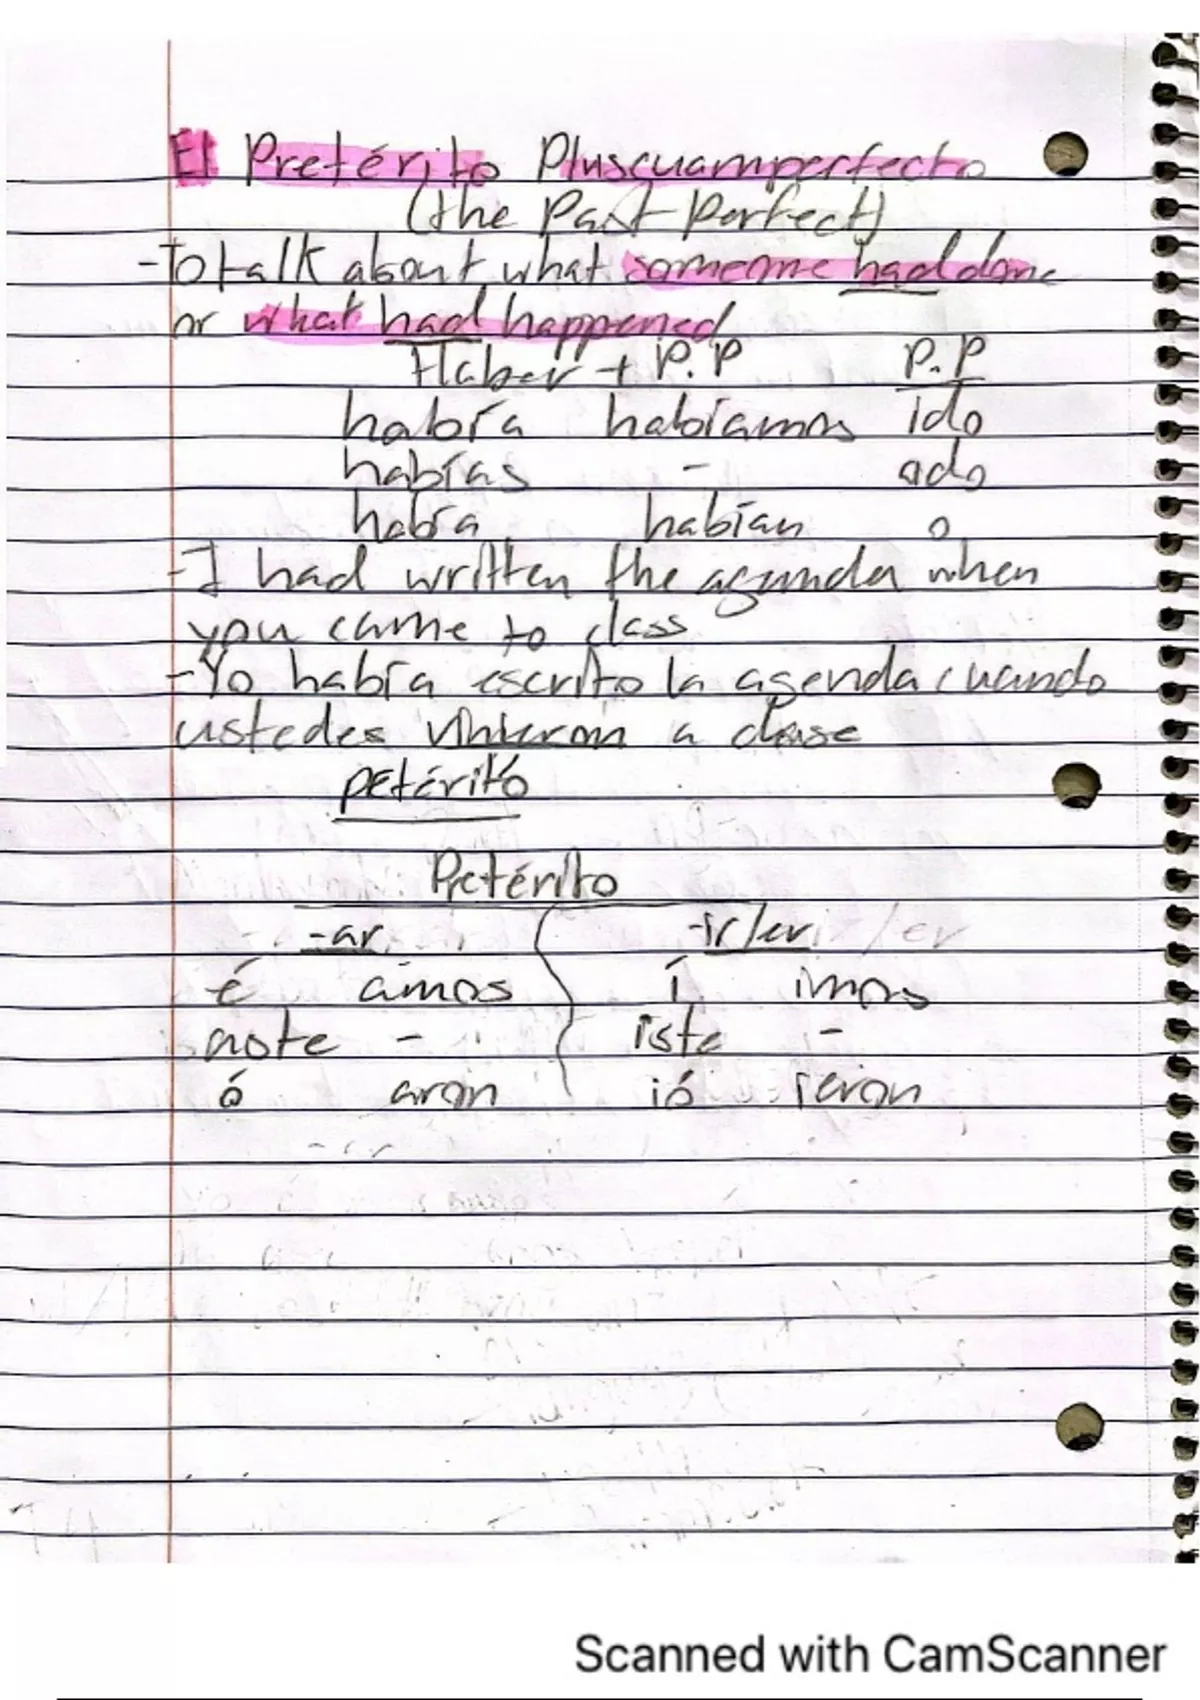 El Pretérito Pluscuamperfecto
(the Past Perfect)
-To talk about what someone had done
or what had happened
Haber + P.P P.P
había habíamos ido
habías - ado
había habían o
-I had written the agenda when
you came to class
-Yo había escrito la agenda cuando
ustedes vinieron a clase
petérito
Pretérito
-ar -ir/er ir/er
é amos í imos
aste - iste -
ó aron ió ieron
-ar
Scanned with CamScanner